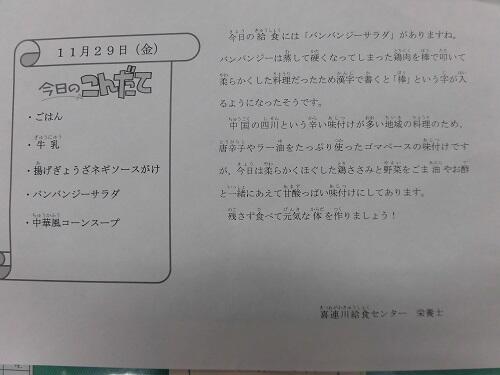 11月29日(金)
今日のこんだて
・ごはん
・牛乳
・揚げぎょうざネギソースがけ
・バンバンジーサラダ
・中華風コーンスープ
今日の給食には「バンバンジーサラダ」がありますね。
バンバンジーは蒸して硬くなってしまった鶏肉を棒で叩いて
柔らかくした料理だったため漢字で書くと「棒」という字が入
るようになったそうです。
中国の四川という辛い味付けが多い地域の料理のため、
唐辛子やラー油をたっぷり使ったゴマベースの味付けです
が、今日は柔らかくほぐした鶏ささみと野菜をごま油やお酢
と一緒にあえて甘酸っぱい味付けにしてあります。
残さず食べて元気な体を作りましょう!
喜連川給食センター 栄養士